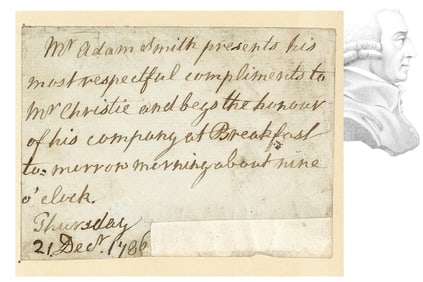 Mr Adam Smith presents his
most respectful compliments to
Mr Christie and begs the honour
of his company at Breakfast
to-morrow morning about nine
o'clock.
Thursday
21 Decr. 1786